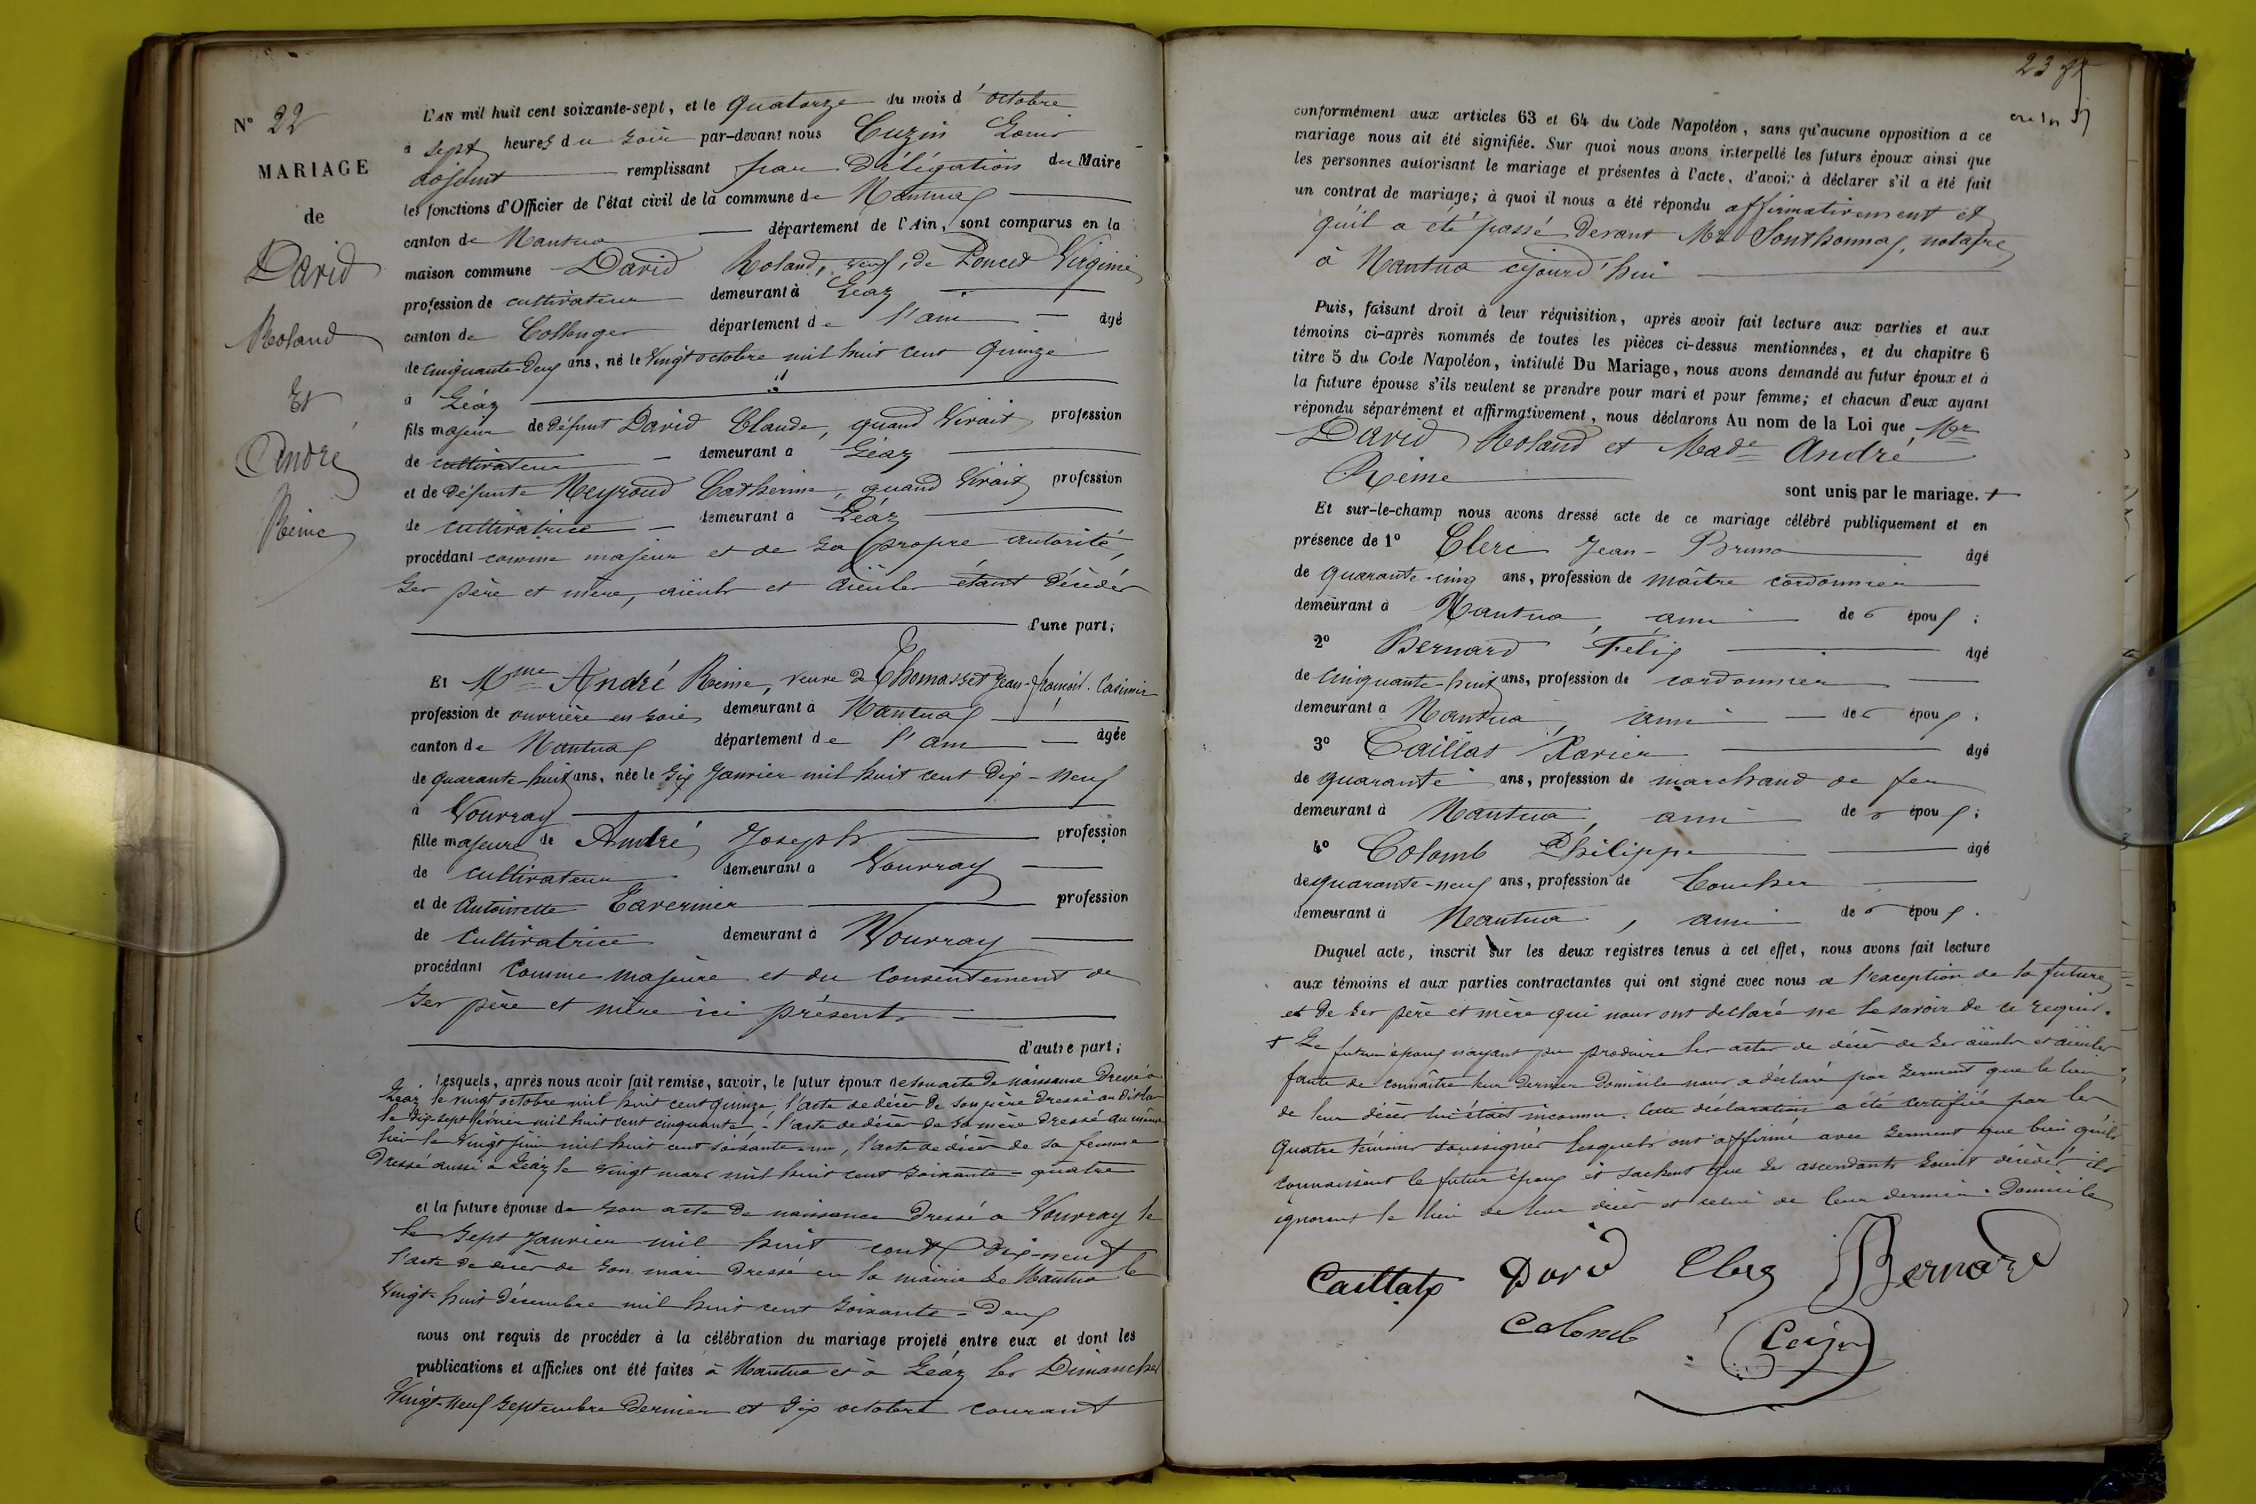 N° 22
MARIAGE
de
David
Roland
Et
André
Reine
L'AN mil huit cent soixante-sept, et le quatorze du mois d'octobre
à sept heures du soir par-devant nous Cuzin Louis
adjoint remplissant par délégation du Maire
les fonctions d'Officier de l'état civil de la commune de Nantua
canton de Nantua département de l'Ain, sont comparus en la
maison commune David Roland, veuf de Poncet Virginie
profession de cultivateur demeurant à Léaz
canton de Collonges département de l'ain âgé
de cinquante-deux ans, né le vingt octobre mil huit cent quinze
à Léaz
fils majeur de défunt David Claude, quand vivait profession
de cultivateur demeurant à Léaz
et de défunte Neyroud Catherine, quand vivait profession
de cultivatrice demeurant à Léaz
procédant comme majeur et de sa propre autorité,
ses père et mère, aïeuls et aïeules étant décédés
d'une part;
Et Mme André Reine, veuve de Thomasset Jean-françois-Casimir
profession de ouvrière en soie demeurant à Nantua
canton de Nantua département de l'ain âgée
de quarante-huit ans, née le six Janvier mil huit cent dix-neuf
à Vouvray
fille majeure de André Joseph profession
de cultivateur demeurant à Vouvray
et de Antoinette Tavernier profession
de cultivatrice demeurant à Vouvray
procédant comme majeure et du consentement de
ses père et mère ici présents
d'autre part;
Lesquels, après nous avoir fait remise, savoir, le futur époux de son acte de naissance dressé à
Léaz le vingt octobre mil huit cent quinze, l'acte de décès de son père dressé au dit lieu
le dix-sept février mil huit cent cinquante, l'acte de décès de sa mère dressé au même
lieu le vingt juin mil huit cent soixante-un, l'acte de décès de sa femme
dressé aussi à Léaz le vingt mars mil huit cent soixante-quatre
et la future épouse de son acte de naissance dressé à Vouvray le
le sept Janvier mil huit cent dix-neuf
l'acte de décès de son mari dressé en la mairie de Nantua le
vingt-huit décembre mil huit cent soixante-deux
nous ont requis de procéder à la célébration du mariage projeté entre eux et dont les
publications et affiches ont été faites à Nantua et à Léaz les Dimanches
vingt-neuf septembre dernier et six octobre courant
23
conformément aux articles 63 et 64 du Code Napoléon, sans qu'aucune opposition a ce
mariage nous ait été signifiée. Sur quoi nous avons interpellé les futurs époux ainsi que
les personnes autorisant le mariage et présentes à l'acte, d'avoir à déclarer s'il a été fait
un contrat de mariage; à quoi il nous a été répondu affirmativement et
qu'il a été passé devant Me Southonnax, notaire
à Nantua cejourd'hui
Puis, faisant droit à leur réquisition, après avoir fait lecture aux parties et aux
témoins ci-après nommés de toutes les pièces ci-dessus mentionnées, et du chapitre 6
titre 5 du Code Napoléon, intitulé Du Mariage, nous avons demandé au futur époux et à
la future épouse s'ils veulent se prendre pour mari et pour femme; et chacun d'eux ayant
répondu séparément et affirmativement, nous déclarons Au nom de la Loi que Mr
David Roland et Made André
Reine
sont unis par le mariage. +
Et sur-le-champ nous avons dressé acte de ce mariage célébré publiquement et en
présence de 1° Clerc Jean-Bruno âgé
de quarante-cinq ans, profession de maître cordonnier
demeurant à Nantua, ami des époux;
2° Bernard Félix âgé
de cinquante-huit ans, profession de cordonnier
demeurant à Nantua, ami des époux;
3° Caillat Xavier âgé
de quarante ans, profession de marchand de fer
demeurant à Nantua, ami des époux;
4° Colomb Philippe âgé
de quarante-neuf ans, profession de
demeurant à Nantua, ami des époux.
Duquel acte, inscrit sur les deux registres tenus à cet effet, nous avons fait lecture
aux témoins et aux parties contractantes qui ont signé avec nous à l'exception de la future
et de ses père et mère qui nous ont déclaré ne le savoir de ce requis.
+ Le futur époux n'ayant pu produire les actes de décès de ses aïeuls et aïeules
faute de connaître leur dernier domicile nous a déclaré par serment que le lieu
de leur décès lui était inconnu. Cette déclaration a été certifiée par les
quatre témoins soussignés lesquels ont affirmé avec serment que bien qu'ils
connaissent le futur époux et sachent que ses ascendants soient décédés ils
ignorent le lieu de leur décès et celui de leur dernier Domicile
Caillat David Clerc Bernard
Colomb Cuzin